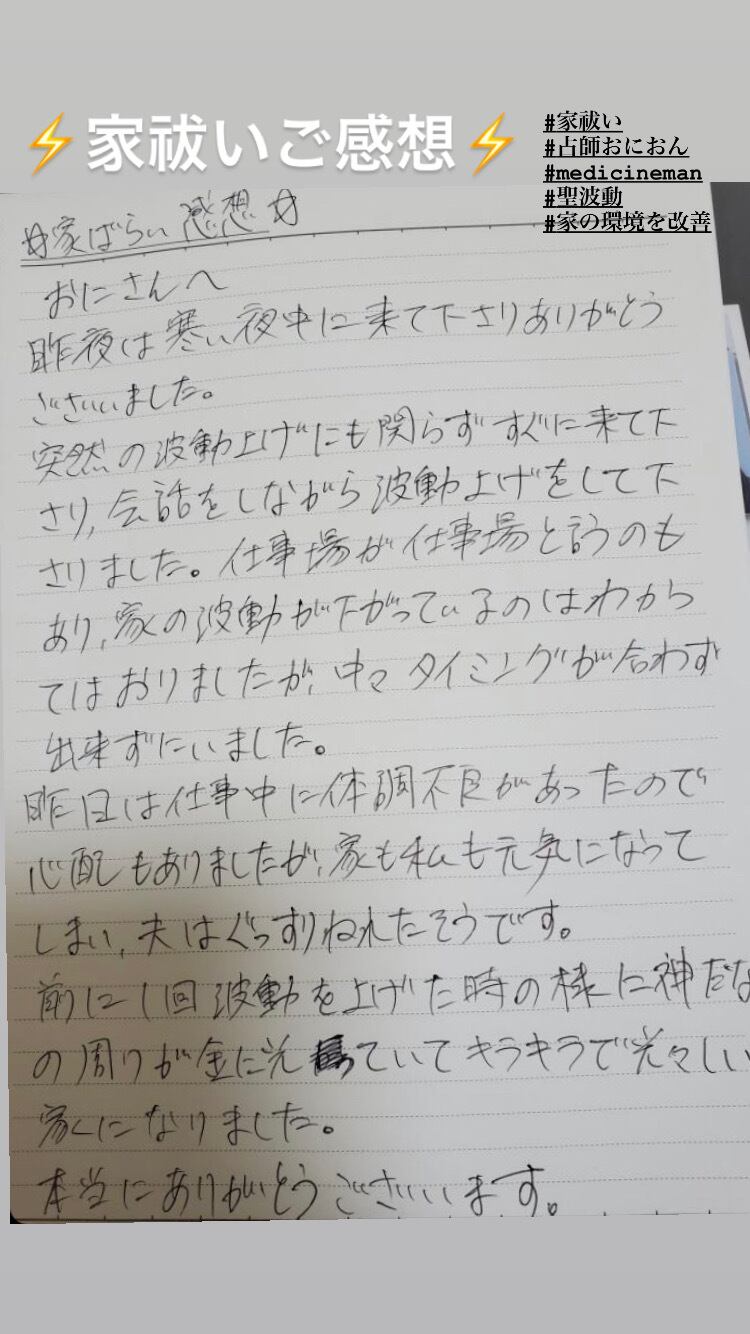 ⚡家祓いご感想⚡
#家祓い
#占師おにおん
#medicineman
#聖波動
#家の環境を改善
☆家ばらい感想☆
おにさんへ
昨夜は寒い夜中に来て下さりありがとう
ございました。
突然の波動上げにも関らずすぐに来て下
さり、会話をしながら波動上げをして下
さりました。仕事場が仕事場と言うのも
あり、家の波動が下がっているのはわから
てはおりましたが、中々タイミングが合わず
出来ずにいました。
昨日は仕事中に体調不良があったので
心配もありましたが、家も私も元気になって
しまい、夫はぐっすりねれたそうです。
前に1回波動を上げた時の様に神だな
の周りが金に光っていてキラキラで光々しい
家になりました。
本当にありがとうございいます。